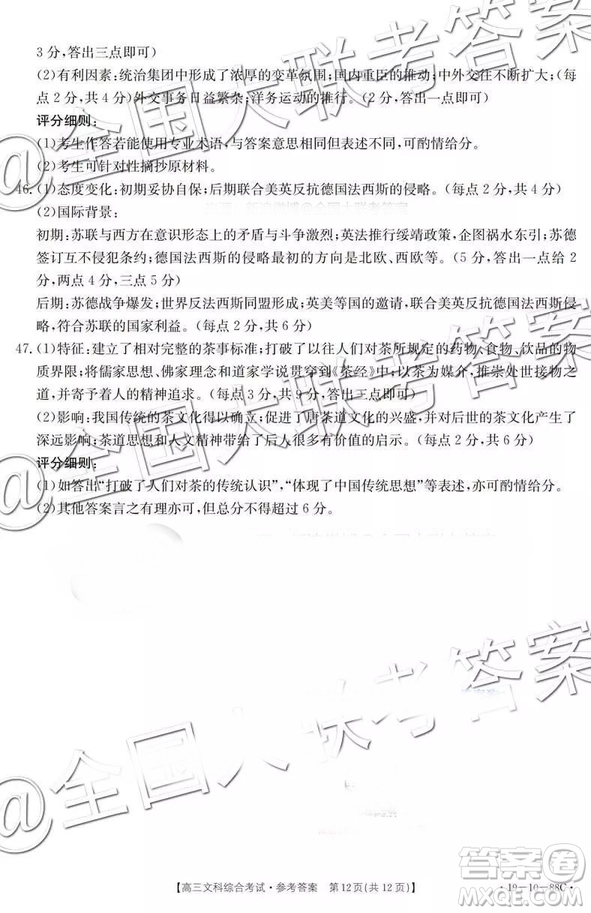 3 分，答出三点即可)
(2)有利因素：统治集团中形成了浓厚的变革氛围；国内重臣的推动；中外交往不断扩大；(每
点 2 分，共 4 分)外交事务日益繁杂；洋务运动的推行。(2 分，答出一点即可)
评分细则：
(1)考生作答若能使用专业术语，与答案意思相关但表述不同，可酌情给分。
(2)考生可针对性摘抄原材料。
46. (1)态度变化：初期妥协自保；后期联合美英反抗德国法西斯的侵略。(4 分)
(2)国际背景：
初期：苏联与西方在意识形态上的矛盾与斗争激烈；英法推行绥靖政策，企图祸水东引；苏德
签订互不侵犯条约；德国法西斯侵略最初的方向是北欧、西欧等。(5 分，答出一点 2
分，两点 4 分，三点 5 分)
后期：苏德战争爆发；世界反法西斯同盟形成；英美等国的邀请，联合反抗德国法西斯的侵
略，符合苏联的国家利益。(每点 2 分，共 6 分)
47. (1)特征：建立了相对完整的茶事标准；打破了以往人们对茶所规定的药物、食物、饮物的物
质界限；将儒家思想、佛家理念和道家学说贯穿到《茶经》中；以茶为媒介，推崇处世接物之
道，并寄予着人的精神追求。(每点 3 分，答出三点即可)
(2)影响：我国传统的茶文化得以确立；促进了唐茶道文化的兴盛，并对后世的茶文化产生了
深远影响；茶道思想和人文精神带给了后人很多有价值的启示。(每点 2 分，共 6 分)
评分细则：
(1)如答出“打破了人们对茶的传统认识”，“体现了中国传统思想”等表述，亦可酌情给分。
(2)其他答案言之有理亦可，但不得超过 6 分。
@全国大联考答案
@全国大联考答案
@全国大联考答案
【高三文科综合考试·参考答案　第 12 页(共 12 页)】
·19－10－88C·
作业精灵